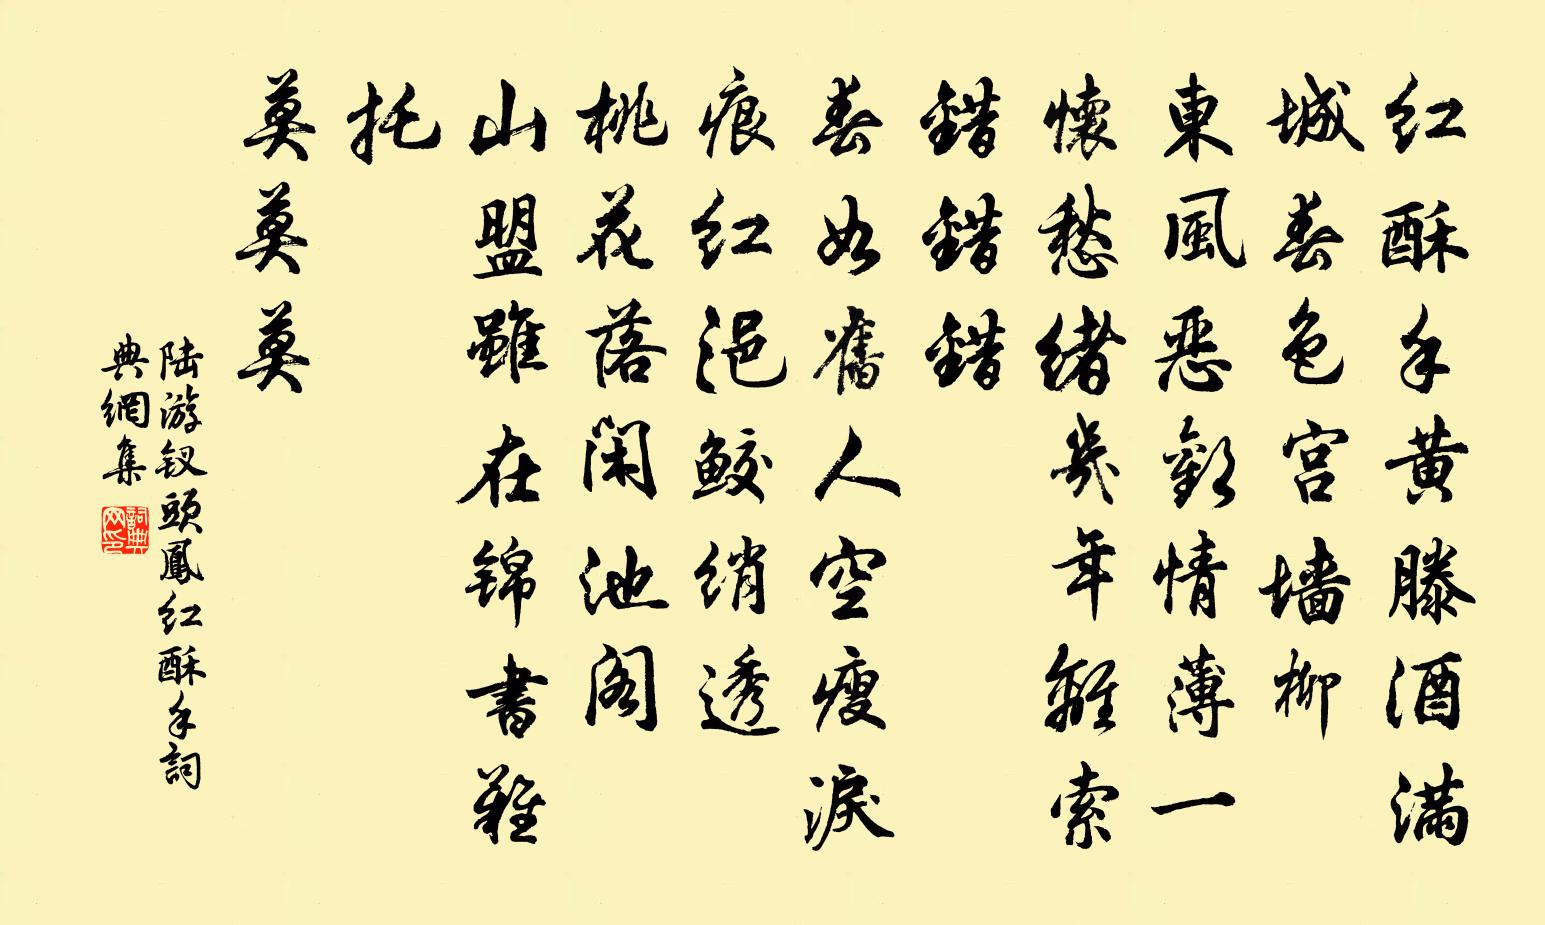 红酥手黄滕酒满
城春色宫墙柳
東風惡歡情薄一
懷愁绪幾年離索
錯錯錯
春如舊人空瘦淚
痕红浥鮫绡透
桃花落闲池阁
山盟雖在锦書難
托
莫莫莫
陆游钗頭鳳红酥手詞
典網集
詞典网印